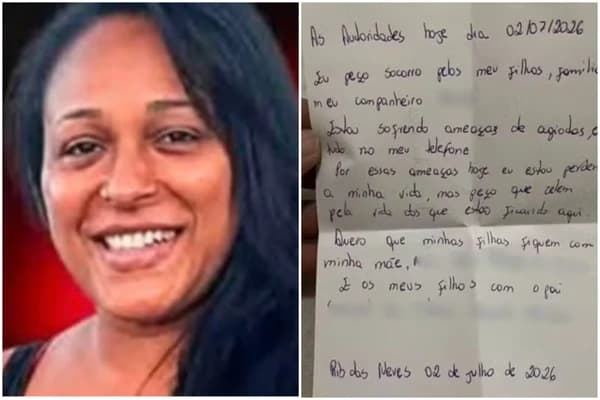 As Autoridades hoje dia 02/07/2026
Eu peço socorro pelos meu filhos, família
meu companheiro
Estou sofrendo ameaças de agiodas, e
tudo no meu telefone
Por essas ameaças hoje eu estou perden
a minha vida, mas peço que zelem
pela vida dos que estão ficando aqui.
Quero que minhas filhas fiquem com
minha mãe,
E os meus filhos com o pai
Rib das Neves 02 de julho de 2026